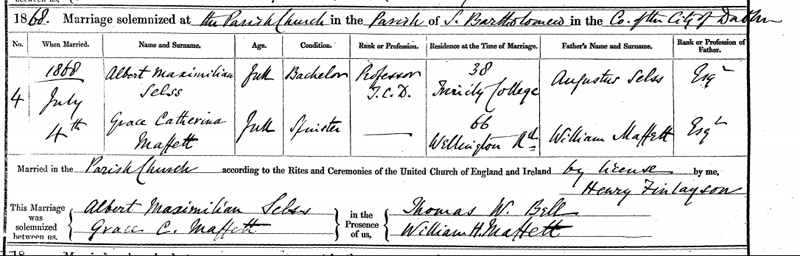 1868. Marriage solemnized at the Parish Church in the Parish of S. Bartholomew in the Co. of the City of Dublin
No. When Married. Name and Surname. Age. Condition. Rank or Profession. Residence at the Time of Marriage. Father's Name and Surname. Rank or Profession of Father.
4 1868 July 4th
Albert Maximilian Selss Full Bachelor Professor T.C.D. 38 Trinity College Augustus Selss Esqr
Grace Catherina Maffett Full Spinster — 66 Wellington Rd William Maffett Esqr
Married in the Parish Church according to the Rites and Ceremonies of the United Church of England and Ireland by license by me,
Henry Finlayson
This Marriage was solemnized between us,
Albert Maximilian Selss
Grace C. Maffett
in the Presence of us,
Thomas W. Bell
William H. Maffett